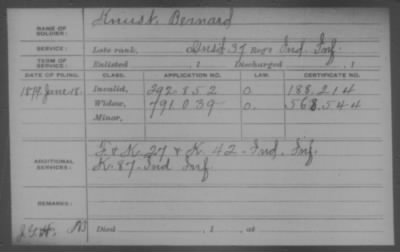 NAME OF SOLDIER: Knust, Bernard
SERVICE: Late rank, Unas'd 37 Reg't Ind. Inf.
TERM OF SERVICE: Enlisted , 1 Discharged , 1
DATE OF FILING. CLASS. APPLICATION NO. LAW. CERTIFICATE NO.
1879 June 18. Invalid, 292.852 0. 188.214
Widow, 791.039 0. 568.544
Minor,
ADDITIONAL SERVICES: F & K. 27 & K. 42 - Ind. Inf.
K. 87 - Ind Inf
REMARKS:
Died , 1 , at